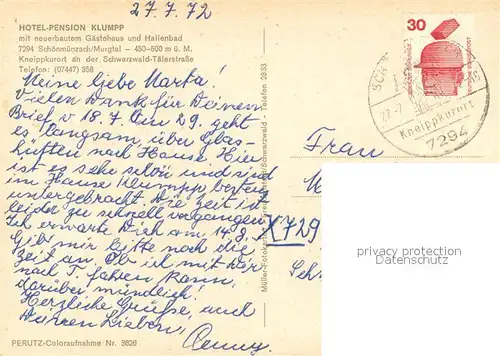 27.7.72
HOTEL-PENSION KLUMPP
mit neuerbautem Gästehaus und Hallenbad
7294 Schönmünzach/Murgtal — 450-600 m ü. M.
Kneippkurort an der Schwarzwald-Tälerstraße
Telefon: (07447) 356
Meine liebe Marta!
Vielen Dank für Deinen
Brief v. 18.7. Am 29. geht
es langsam über Glas-
hütten nach Hause. Hier
ist es sehr schön und sind
im Hause Klumpp bestens
untergebracht. Die Zeit ist
leider zu schnell vergangen
Ich erwarte Dich am 14.8.
Gib mir bitte noch die
Zeit an. Ob ich mit Dir
nach T. fahren kann,
darüber mündlich.
Herzliche Grüße, auch
Deinen Lieben,
Aenny.
PERUTZ-Coloraufnahme Nr. 3626
Schwarzwald - Telefon 2833
30
DEUTSCHE BUNDESPOST
27.-7
Kneippkurort
7294
Frau
X729
privacy protection
Datenschutz